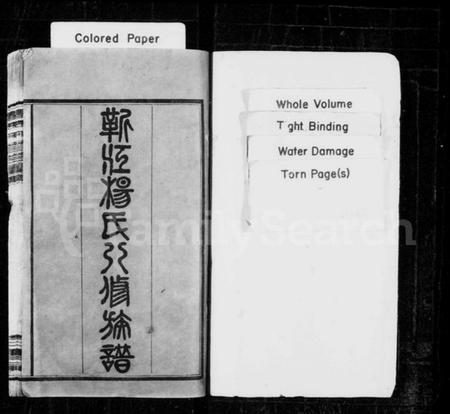 Colored Paper
靳江楊氏八修族譜
Whole Volume
Tight Binding
Water Damage
Torn Page(s)
FamilySearch